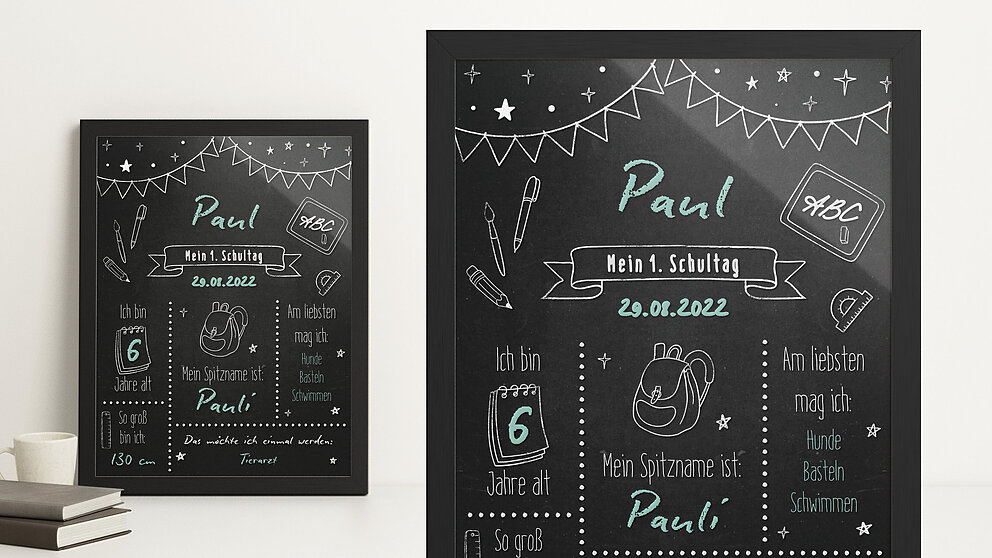 Paul
ABC
Mein 1. Schultag
29.08.2022
Ich bin
6
Jahre alt
Mein Spitzname ist:
Pauli
Am liebsten
mag ich:
Hunde
Basteln
Schwimmen
So groß
bin ich:
130 cm
Das möchte ich einmal werden:
Tierarzt
Paul
ABC
Mein 1. Schultag
29.08.2022
Ich bin
6
Jahre alt
Mein Spitzname ist:
Pauli
Am liebsten
mag ich:
Hunde
Basteln
Schwimmen
So groß